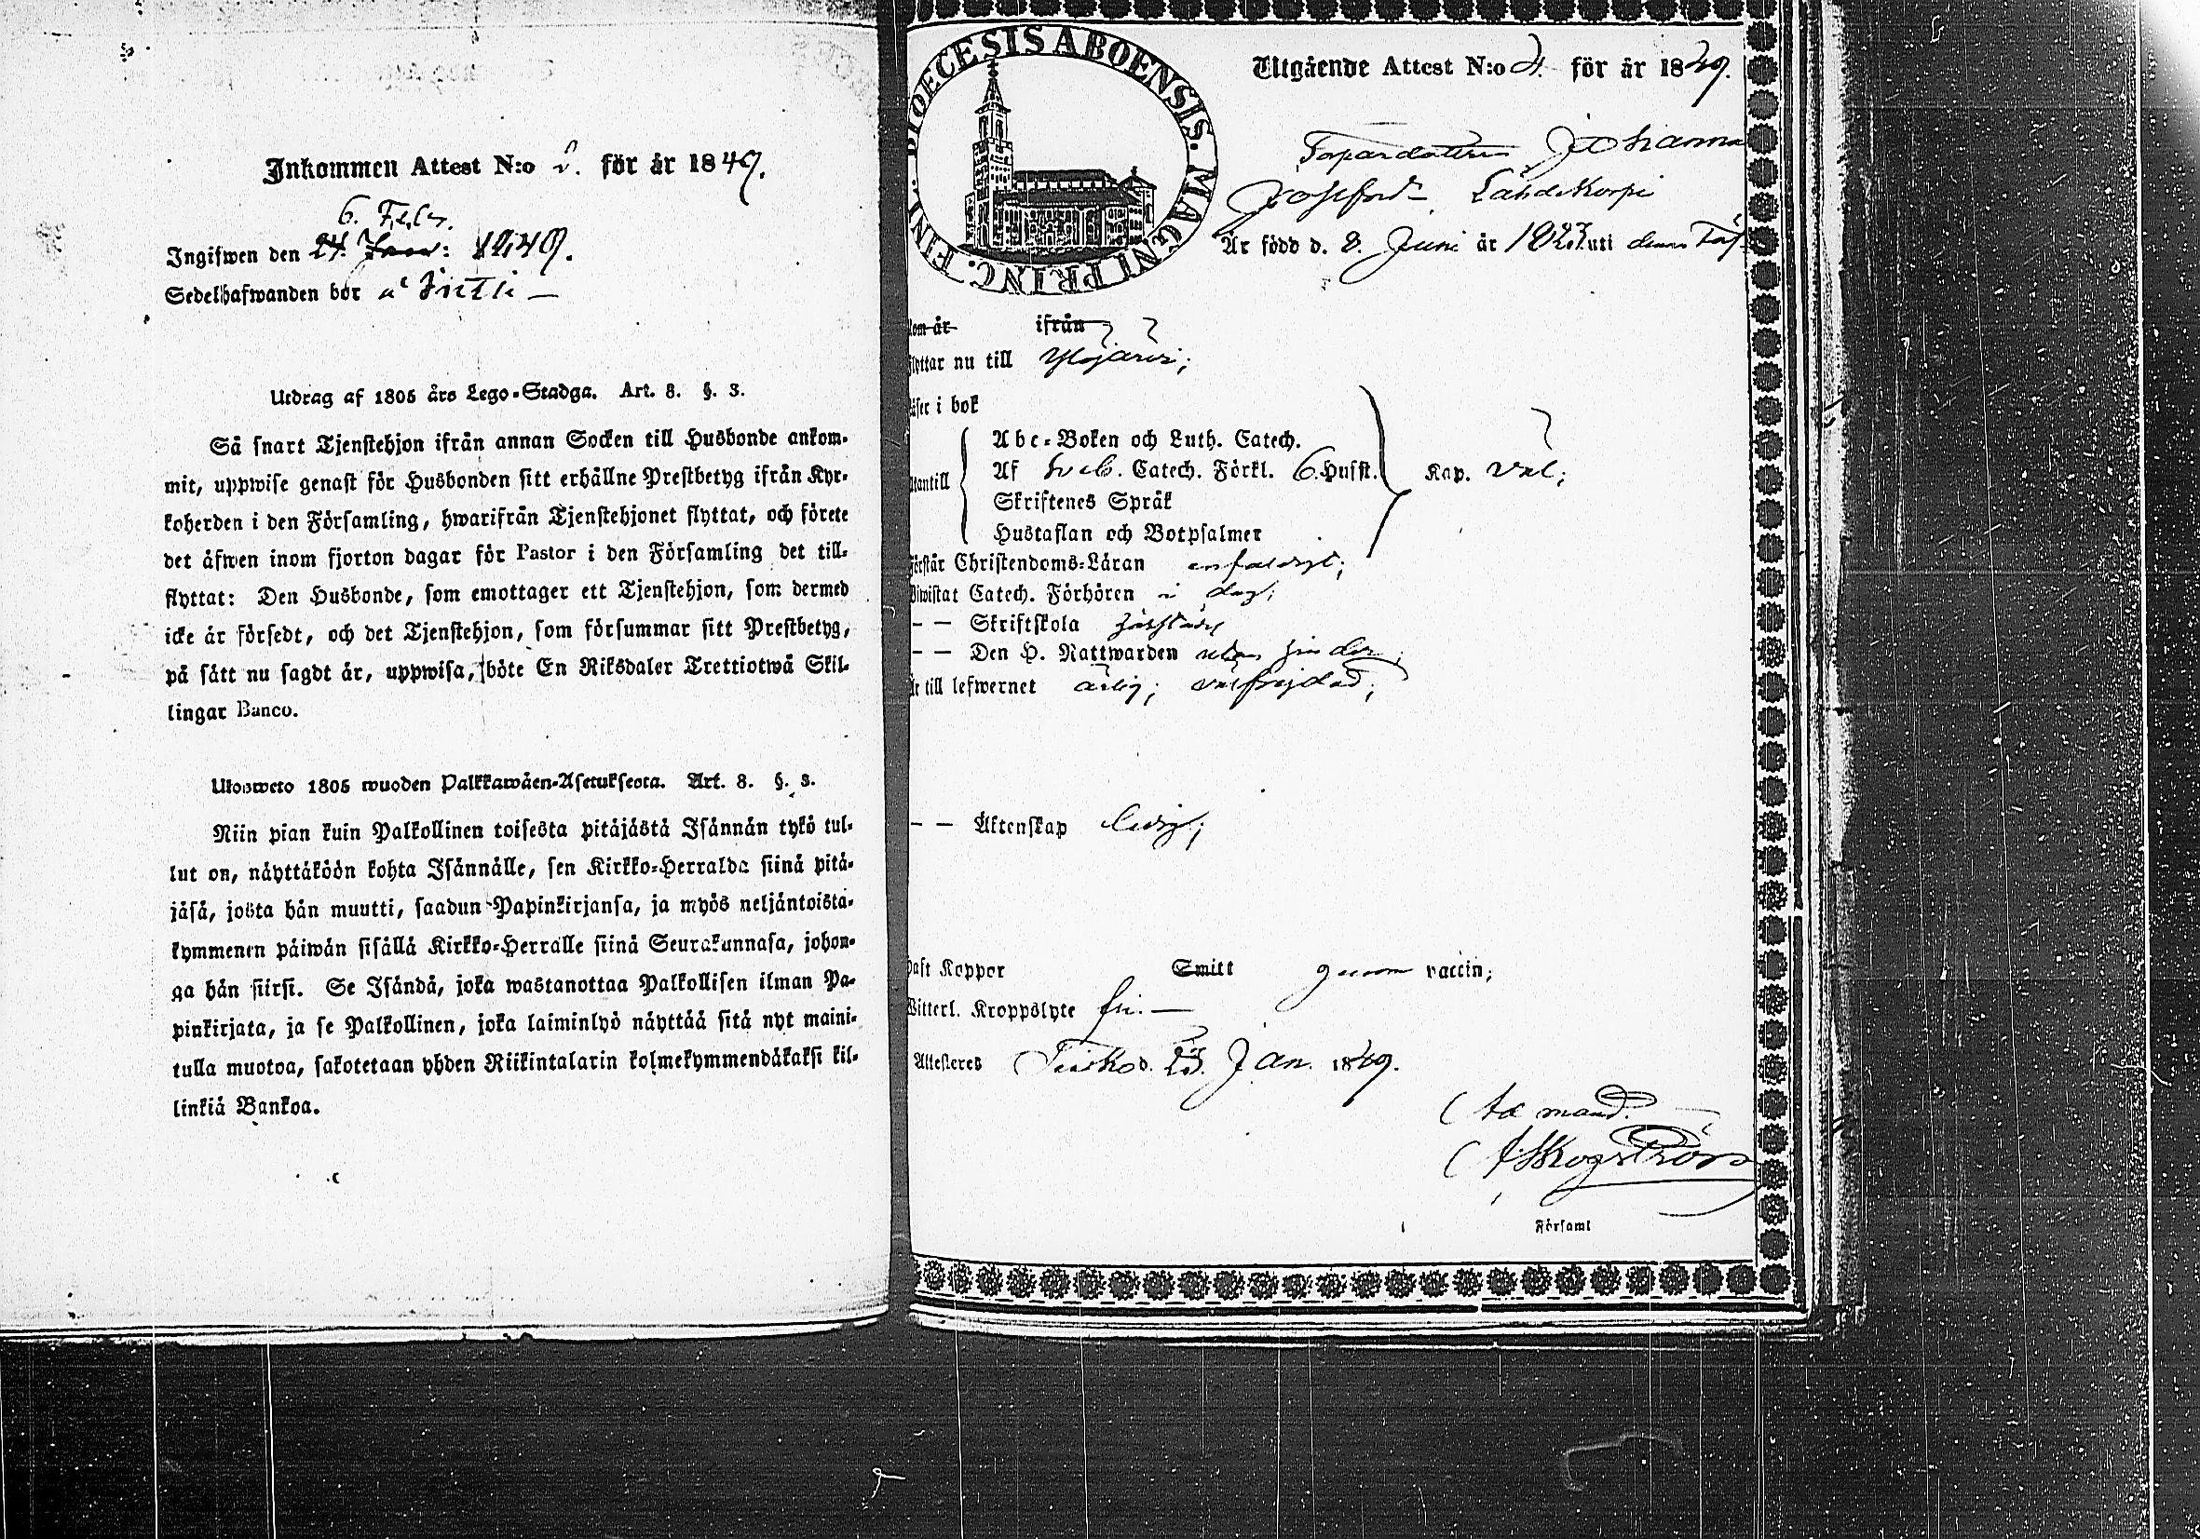 Inkommen Attest N:o 2. för år 1849.
6. Febr.
Ingifwen den 24. Jan: 1849.
Sedelhafwanden bor å
Utdrag af 1805 års Lego-Stadga. Art. 8. §. 3.
Så snart Tjenstehjon ifrån annan Socken till Husbonde ankom-
mit, uppwise genast för Husbonden sitt erhållne Prestbetyg ifrån Kyr-
koherden i den Församling, hwarifrån Tjenstehjonet flyttat, och förete
det äfwen inom fjorton dagar för Pastor i den Församling det till-
flyttat: Den Husbonde, som emottager ett Tjenstehjon, som dermed
icke är försedt, och det Tjenstehjon, som försummar sitt Prestbetyg,
på sätt nu sagdt är, uppwisa, böte En Riksdaler Trettiotwå Skil-
lingar Banco.
Ulosweto 1805 wuoden Palkkawäen-Asetuksesta. Art. 8. §. 3.
Niin pian kuin Palkollinen toisesta pitäjästä Isännän tykö tul-
lut on, näyttäköön kohta Isännälle, sen Kirkko-Herralda siinä pitä-
jäsä, josta hän muutti, saadun Papinkirjansa, ja myös neljäntoista-
kymmenen päiwän sisällä Kirkko-Herralle siinä Seurakunnasa, johon-
ga hän siirsi. Se Isändä, joka wastanottaa Palkollisen ilman Pa-
pinkirjata, ja se Palkollinen, joka laiminlyö näyttää sitä nyt maini-
tulla muotoa, sakotetaan yhden Riikintalarin kolmekymmendäkaksi kil-
linkiä Bankoa.
DIOECESIS ABOENSIS. MAGNI PRINC. FINL.
Utgående Attest N:o 4. för år 1849.
Torpardottren Johanna
Josefsdr Lähdekorpi
Är född d. 8. Juni år 1823 uti denna
kom år ifrån
flyttar nu till Ylöjärvi;
läser i bok
Abc-Boken och Luth. Catech.
utantill Af Sveb. Catech. Förkl. 6. Husst. Kap. väl;
Skriftenes Språk
Hustaflan och Botpsalmer
Förstår Christendoms-Läran enfaldigt;
Biwistat Catech. Förhören i dag;
— — Skriftskola
— — Den H. Nattwarden utan hinder;
Är till lefwernet ärlig; välfrejdad;
— — Äktenskap ledig;
haft Koppor Smitt genom vaccin;
Witterl. Kroppslyte fri. —
Attesteres d. 23. Jan. 1849.
Ad mand.
Skogström
Församl